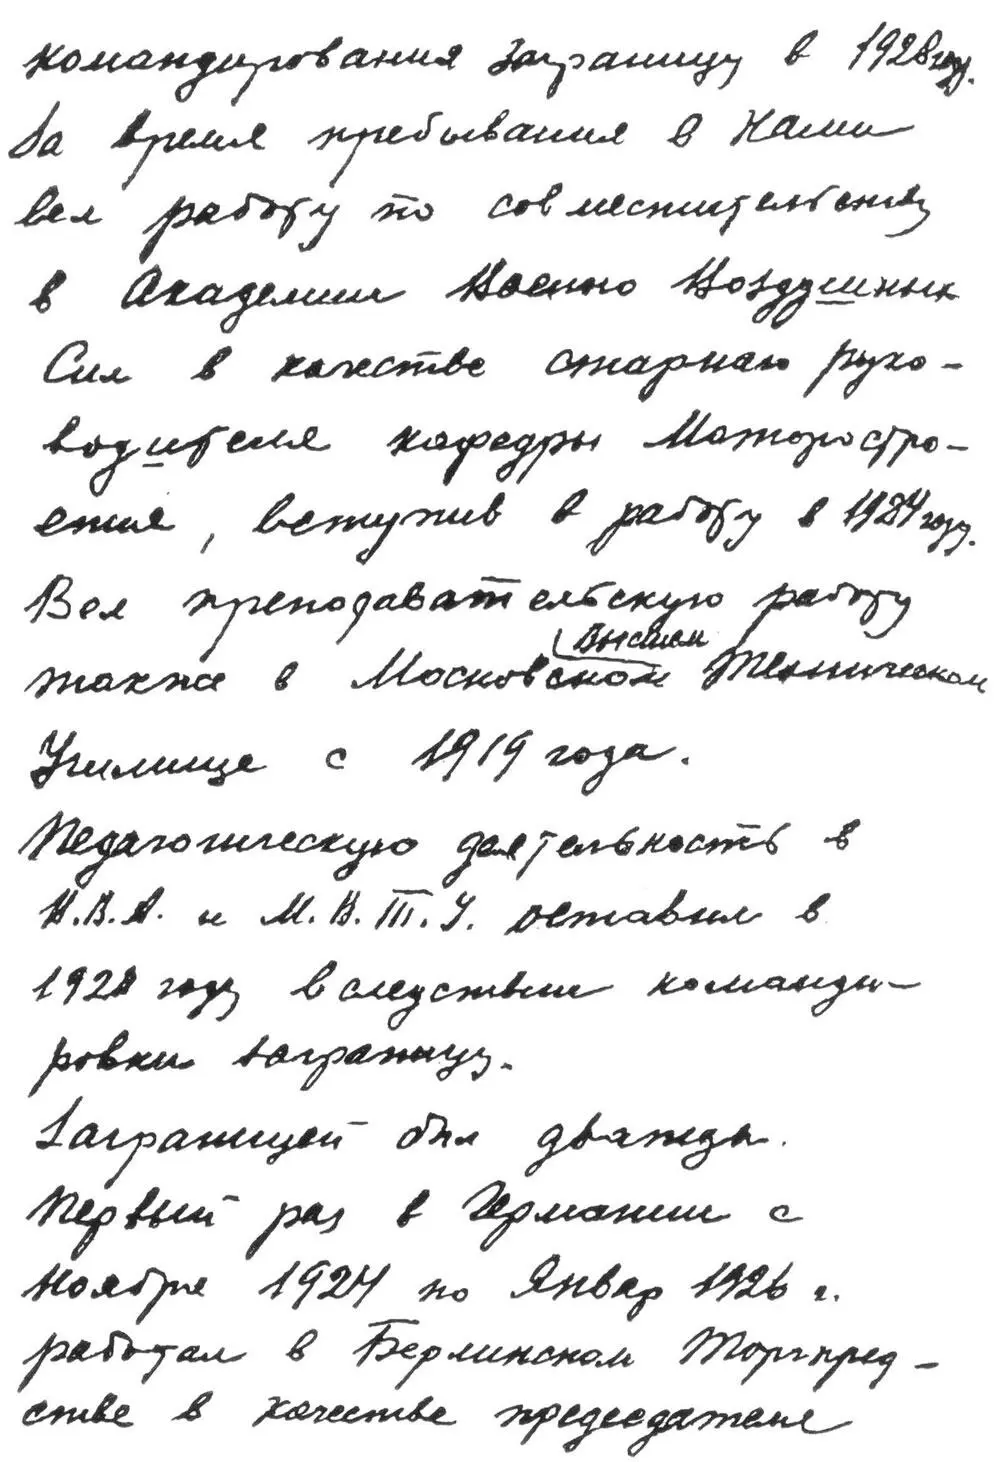 командирования заграницу в 1928 году.
За время пребывания в Нами
вел работу по совместительству
в Академии Военно Воздушных
Сил в качестве старшаго руко-
водителя кафедры Моторостро-
ения, вступив в работу в 1924 году.
Вел преподавательскую работу
также в Московском Высшем Техническом
Училище с 1919 года.
Педагогическую деятельность в
А.В.А. и М.В.Т.У. оставил в
1928 году вследствии команди-
ровки заграницу.
Заграницей был дважды.
Первый раз в Германии с
Ноября 1924 по Январ 1926 г.
работал в Берлинском Торгпред-
стве в качестве председателя